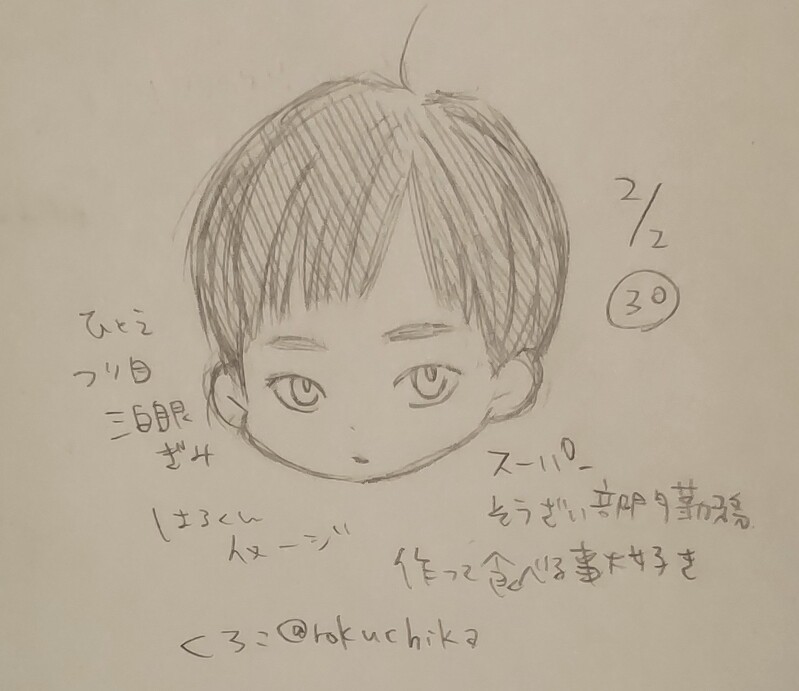 2/2
30
ひとえ
つり目
三白眼
ぎみ
はるくん
イメージ
スーパー
そうざい部門勤務
作って食べる事大好き
くろこ@rokuchika